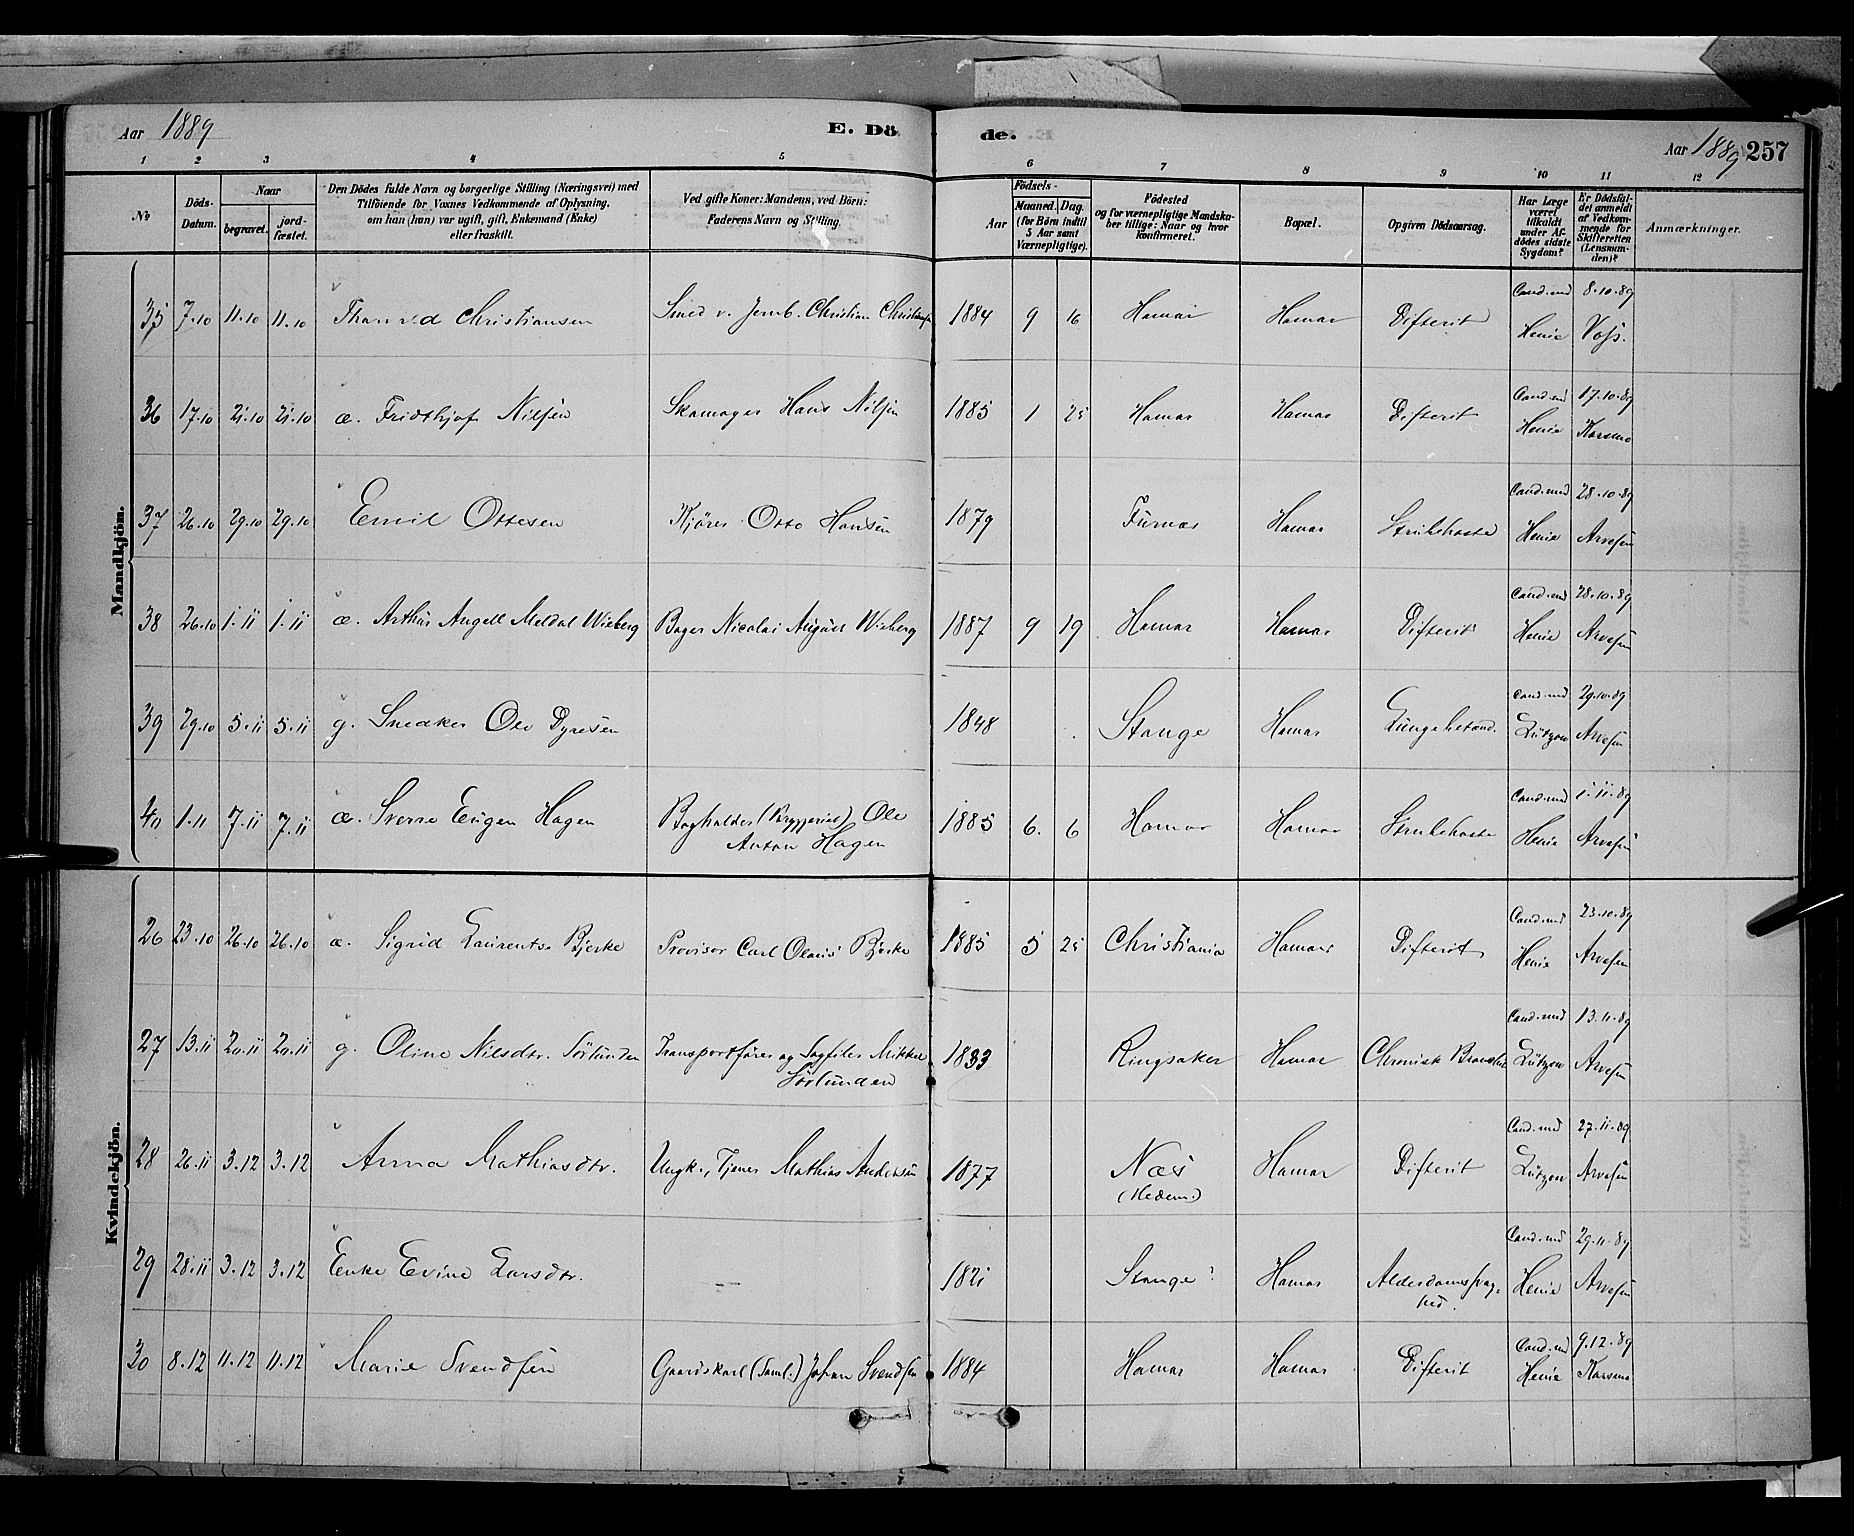 Aar 1889 E. Dö de. Aar 1889 257
1 2 3 4 5 6 7 8 9 10 11 12
No
Döds-Datum.
Naar
begravet.
jordfæstet.
Den Dödes fulde Navn og borgerlige Stilling (Næringsvei) med
Tilföiende for Voxnes Vedkommende af Oplysning,
om han (hun) var ugift, gift, Enkemand (Enke)
eller fraskilt.
Ved gifte Koner: Mandens, ved Börn:
Faderens Navn og Stilling
Födsels-
Aar
Maaned. Dag.
(for Börn indtil
5 Aar samt
Værnepligtige).
Födested
og for værnepligtige Mandskaber tillige: Naar og hvor
konfirmeret.
Bopæl.
Opgiven Dödsaarsag.
Har Læge
været
tilkaldt
under Afdödes sidste
Sygdom?
Er Dödsfaldet anmeldt
af Vedkommende for
Skifteretten
(Lensmanden)?
Anmærkninger.
Mandkjön.
35 7.10 11.10 11.10 Christiansen Smed v. Jernb. Christian Christiansen 1884 9 16 Hamar Hamar Difterit Cand. med Henie 8.10.89 Voss.
36 17.10 21.10 21.10 æ. Fridthjof Nilsen Skomager Hans Nilsen 1885 1 25 Hamar Hamar Difterit Cand. med Henie 17.10.89 Karsmo
37 26.10 29.10 29.10 Emil Ottesen Kjörer Otto Hansen 1879 Furnæs Hamar Strubehoste Cand. med Henie 28.10.89 Arvesen
38 26.10 1.11 1.11 æ. Arthur Angell Meldal Wiberg Bager Nicolai August Wiberg 1887 9 19 Hamar Hamar Difterit Cand. med Henie 28.10.89 Arvesen
39 29.10 5.11 5.11 g. Snedker Ole Dyresen 1848 Stange Hamar Lungebetænd. Cand. med Lützow 29.10.89 Arvesen
40 1.11 7.11 7.11 æ. Sverre Eugen Hagen Bogholder (Bryggeriet) Ole
Anton Hagen 1885 6. 6 Hamar Hamar Strubehoste Cand. med Henie 1.11.89 Arvesen
Kvindekjön.
26 23.10 26.10 26.10 æ. Sigrid Laurentse Bjerke Provisor Carl Olaus Bjerke 1885 5 25 Christiania Hamar Difterit Cand. med Henie 23.10.89 Arvesen
27 13.11 20.11 20.11 g. Oline Nilsdtr. Sørlunden Transportfører og Sagfiler Mikkel
Sørlunden 1833 Ringsaker Hamar Chronisk Cand. med Lützow 13.11.89 Arvesen
28 26.11 3.12 3.12 Anna Mathiasdtr. Ungk., Tjener Mathias Andersen 1877 Næs
(Hedem.) Hamar Difterit Cand. med Lützow 27.11.89 Arvesen
29 28.11 3.12 3.12 Enke Evine Larsdtr. — 1821 Stange Hamar Alderdomssvaghed. Cand. med Henie 29.11.89 Arvesen
30 8.12 11.12 11.12 Marie Svendsen Gaardskarl (Saml.) Johan Svendsen 1884 Hamar Hamar Difterit Cand. med Henie 9.12.89 Karsmo